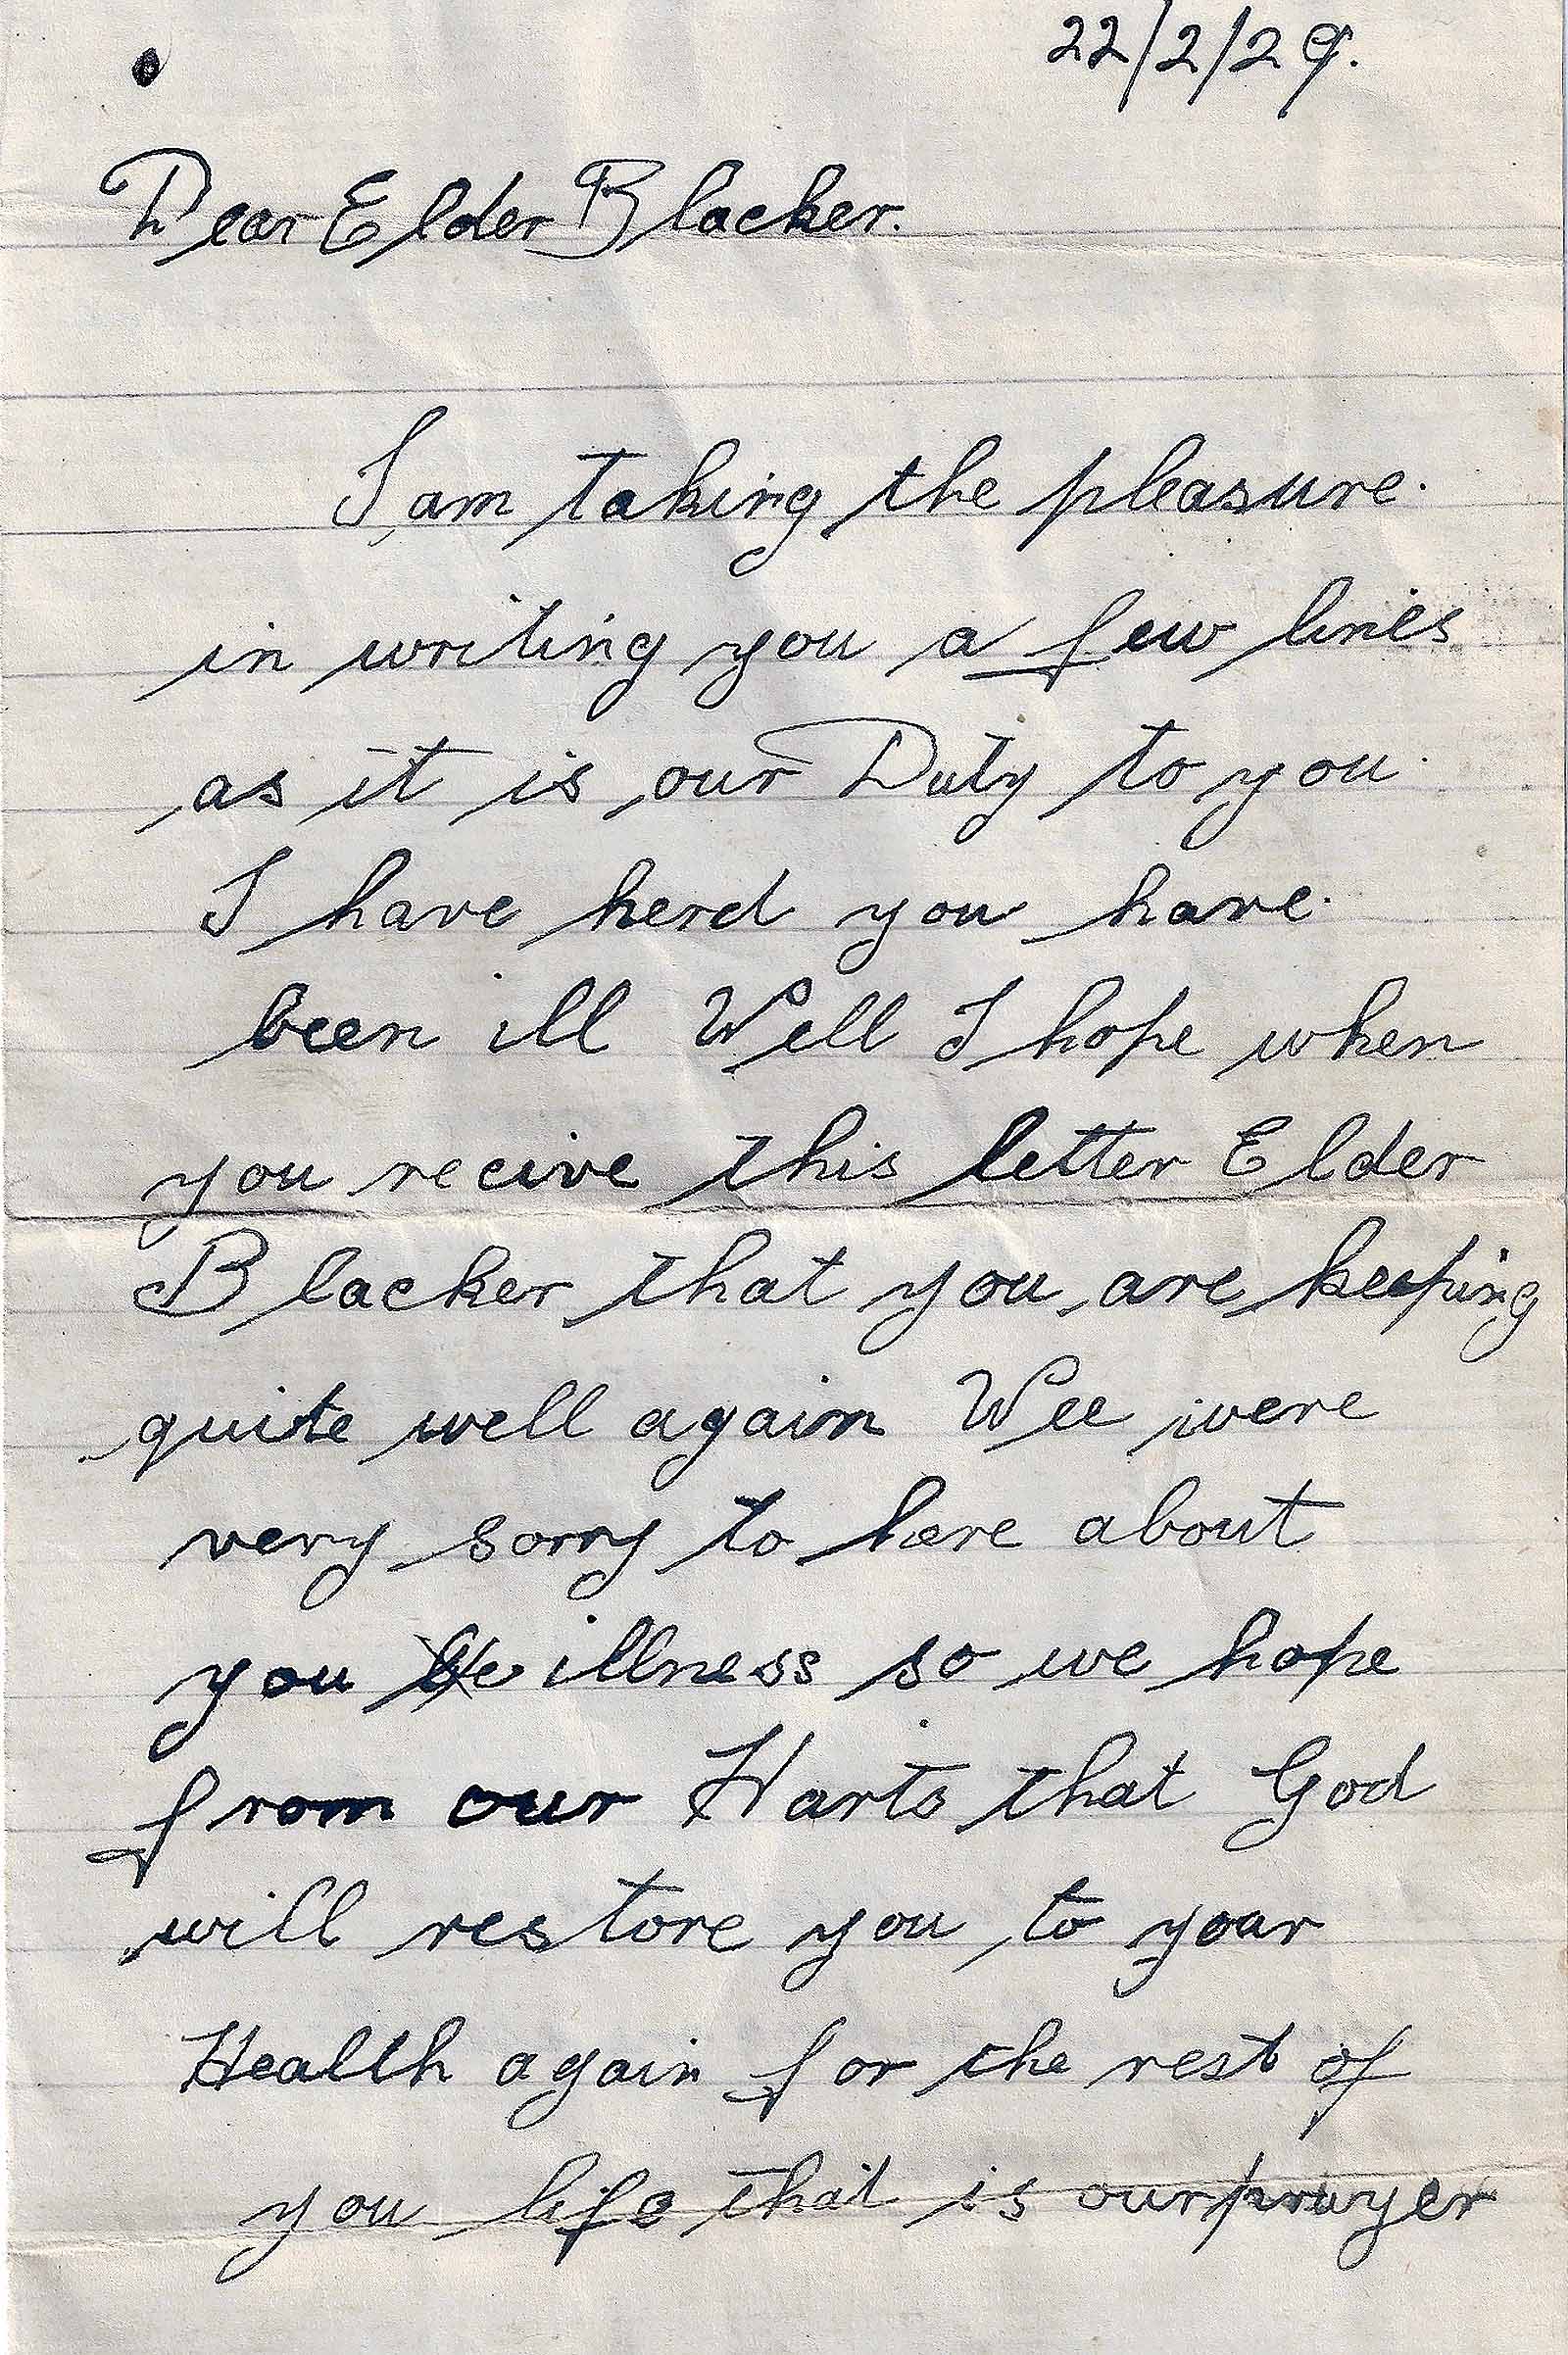 22/2/29.
Dear Elder Blacker.
I am taking the pleasure.
in writing you a few lines
as it is our Duty to you.
I have herd you have.
been ill Well I hope when
you recive this letter Elder
Blacker that you are keeping
quite well again Wee were
very sorry to here about
you illness so we hope
from our Harts that God
will restore you to your
Health again for the rest of
you life that is our prayer